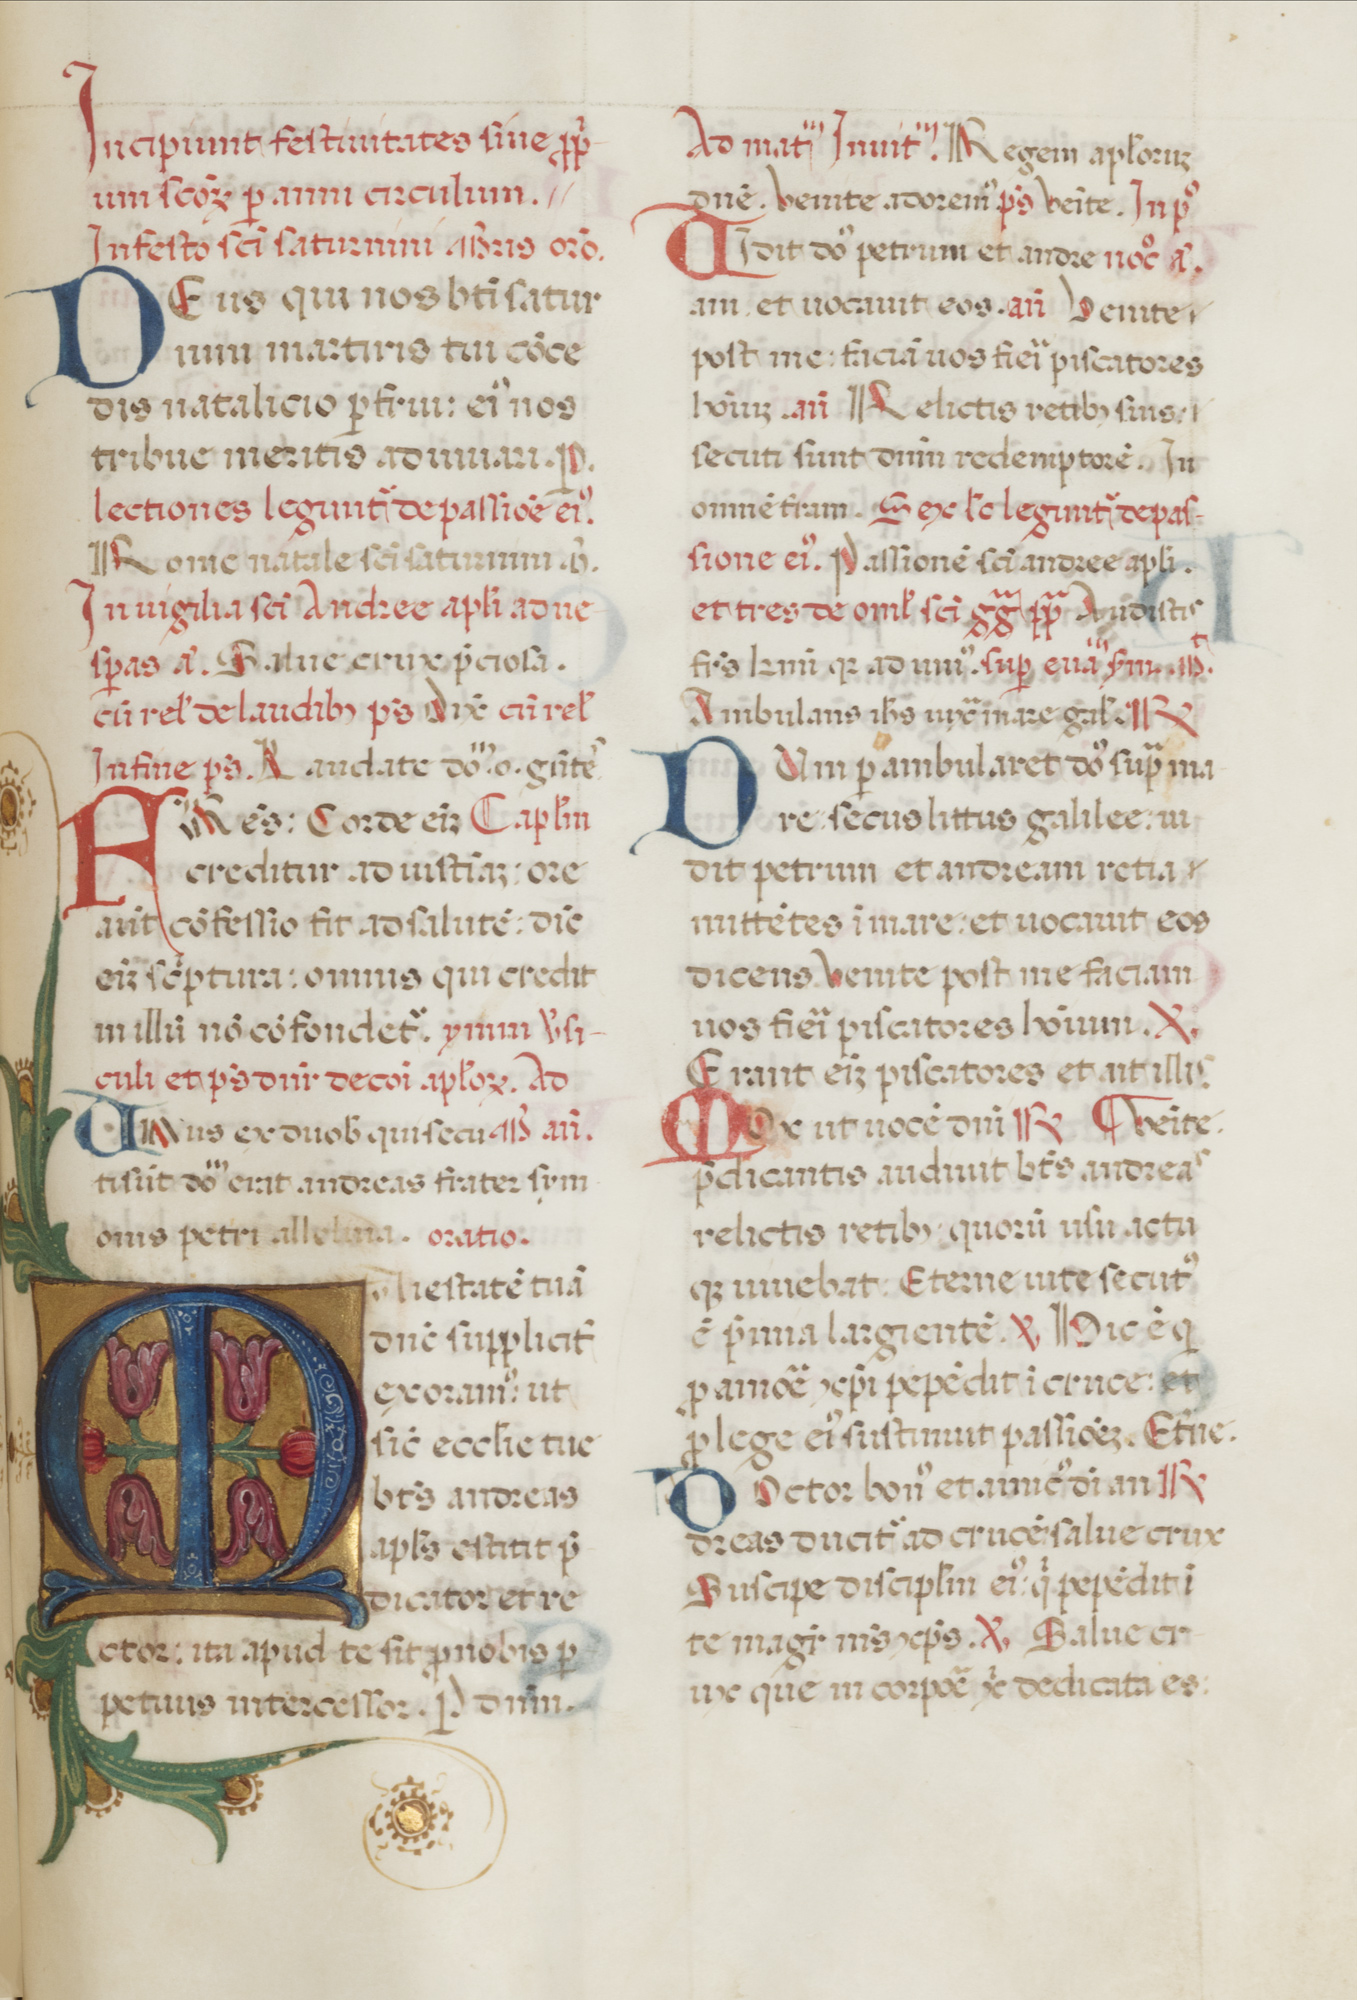 Incipiunt festiuitates siue ꝓp̃-
um scõꝝ ꝑ anni circulum.
In festo sc̃i saturnini m̃ris orõ.
DEus qui nos bt̃i satur
nini martiris tui cõce
dis natalicio ꝑfrui: eiꝰ nos
tribue meritis adiuuari. P.
lectiones legunt᷑ de passiõe eiꝰ.
Rome natale sc̃i saturnini
In uigilia sc̃i Andree apl̃i ad ue
sꝑas a. Salue crux p̃ciosa.
cũ rel̃ de laudibꝫ ps̃ Dix̃ cũ rel̃
In fine ps̃. Laudate
FRẽs: Corde eĩ Capl̃m
creditur ad iustiaꝫ: ore
aut̃ cõfessio fit ad salutẽ: dic̃
eĩ sc̃ptura: omnis qui credit
in illũ nõ cõfondet᷑. ymni ũsi-
culi et ps̃ dnr̃ de coĩ apl̃oꝝ. Ad
Unus ex duobꝫ qui secu M̃ añ.
ti sũt dom̃ erat andreas frater sym
onis petri alleluia. oratio.
Maiestatẽ tuã
dñe supplicit̃
exoramꝰ: ut
sic̃ ecclie tue
bt̃s andreas
apl̃s extitit p̃
dicator et re
ctor: ita apud te sit ꝓ nobis ꝑ
petuus intercessor. P dnm̃.
Ad mat̃ Inuit̃. Regem apl̃oruꝫ
dñe. Venite adoremꝰ ps̃ Veĩte. In pꝰ
Uidit doꝰ petrum et andre nocꝰ a.
am et uocauit eos. añ Venite
post me: faciã uos fieri piscatores
hoĩuꝫ. añ Relictis retibꝫ suis:
secuti sunt dnm̃ redemptorẽ. In
omnẽ tr̃am. Sex lc̃ legunt᷑ de pas-
sione eiꝰ. Passionẽ sc̃i andree apl̃i.
et tres de omil̃ sc̃i gg̃ pp̃ Audistis
fr̃s kr̃mi qꝫ ad uniꝰ. suꝑ euã
Ambulans ih̃s iuxᷓ mare galꝫ. R
DUm ꝑambularet doꝰ sup̃ ma
re: secus littus galilee: ui
dit petrum et andream retia
mittẽtes ĩ mare: et uocauit eos
dicens Venite post me faciam
uos fieri piscatores hoĩum. V.
Erant eĩ piscatores et ait illis
MOx ut uocẽ dnĩ R Veĩte.
p̃dicantis audiuit bt̃s andreas
relictis retibꝫ quorũ usu actu
qꝫ uiuebat: Eterne uite secutꝰ
ẽ p̃mia largientẽ. V. Hic ẽ q̃
ꝓ amoẽ xp̃i pepẽdit ĩ cruce: et
ꝓ lege eiꝰ sustinuit passiõeꝫ. Et̃ne.
DOctor bonꝰ et amicꝰ di an R
dreas ducit᷑ ad crucẽ: salue crux
Suscipe discipl̃m eiꝰ: q̃ pepẽdit ĩ
te magr̃ ms̃ xp̃s. V. Salue cr-
ux que in corpoẽ xp̃i dedicata es: